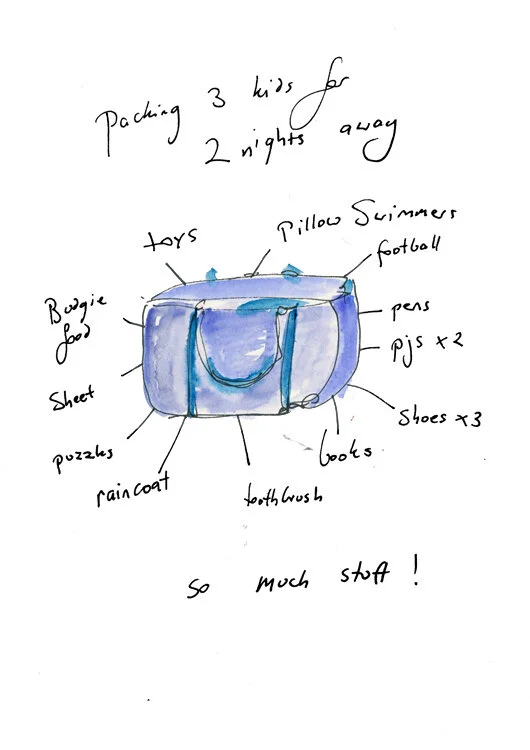 Packing 3 kids for
2 nights away
toys
Pillow Swimmers
football
Budgie
food
pens
pjs x2
Sheet
Shoes x3
puzzles
books
raincoat
toothbrush
so much stuff!